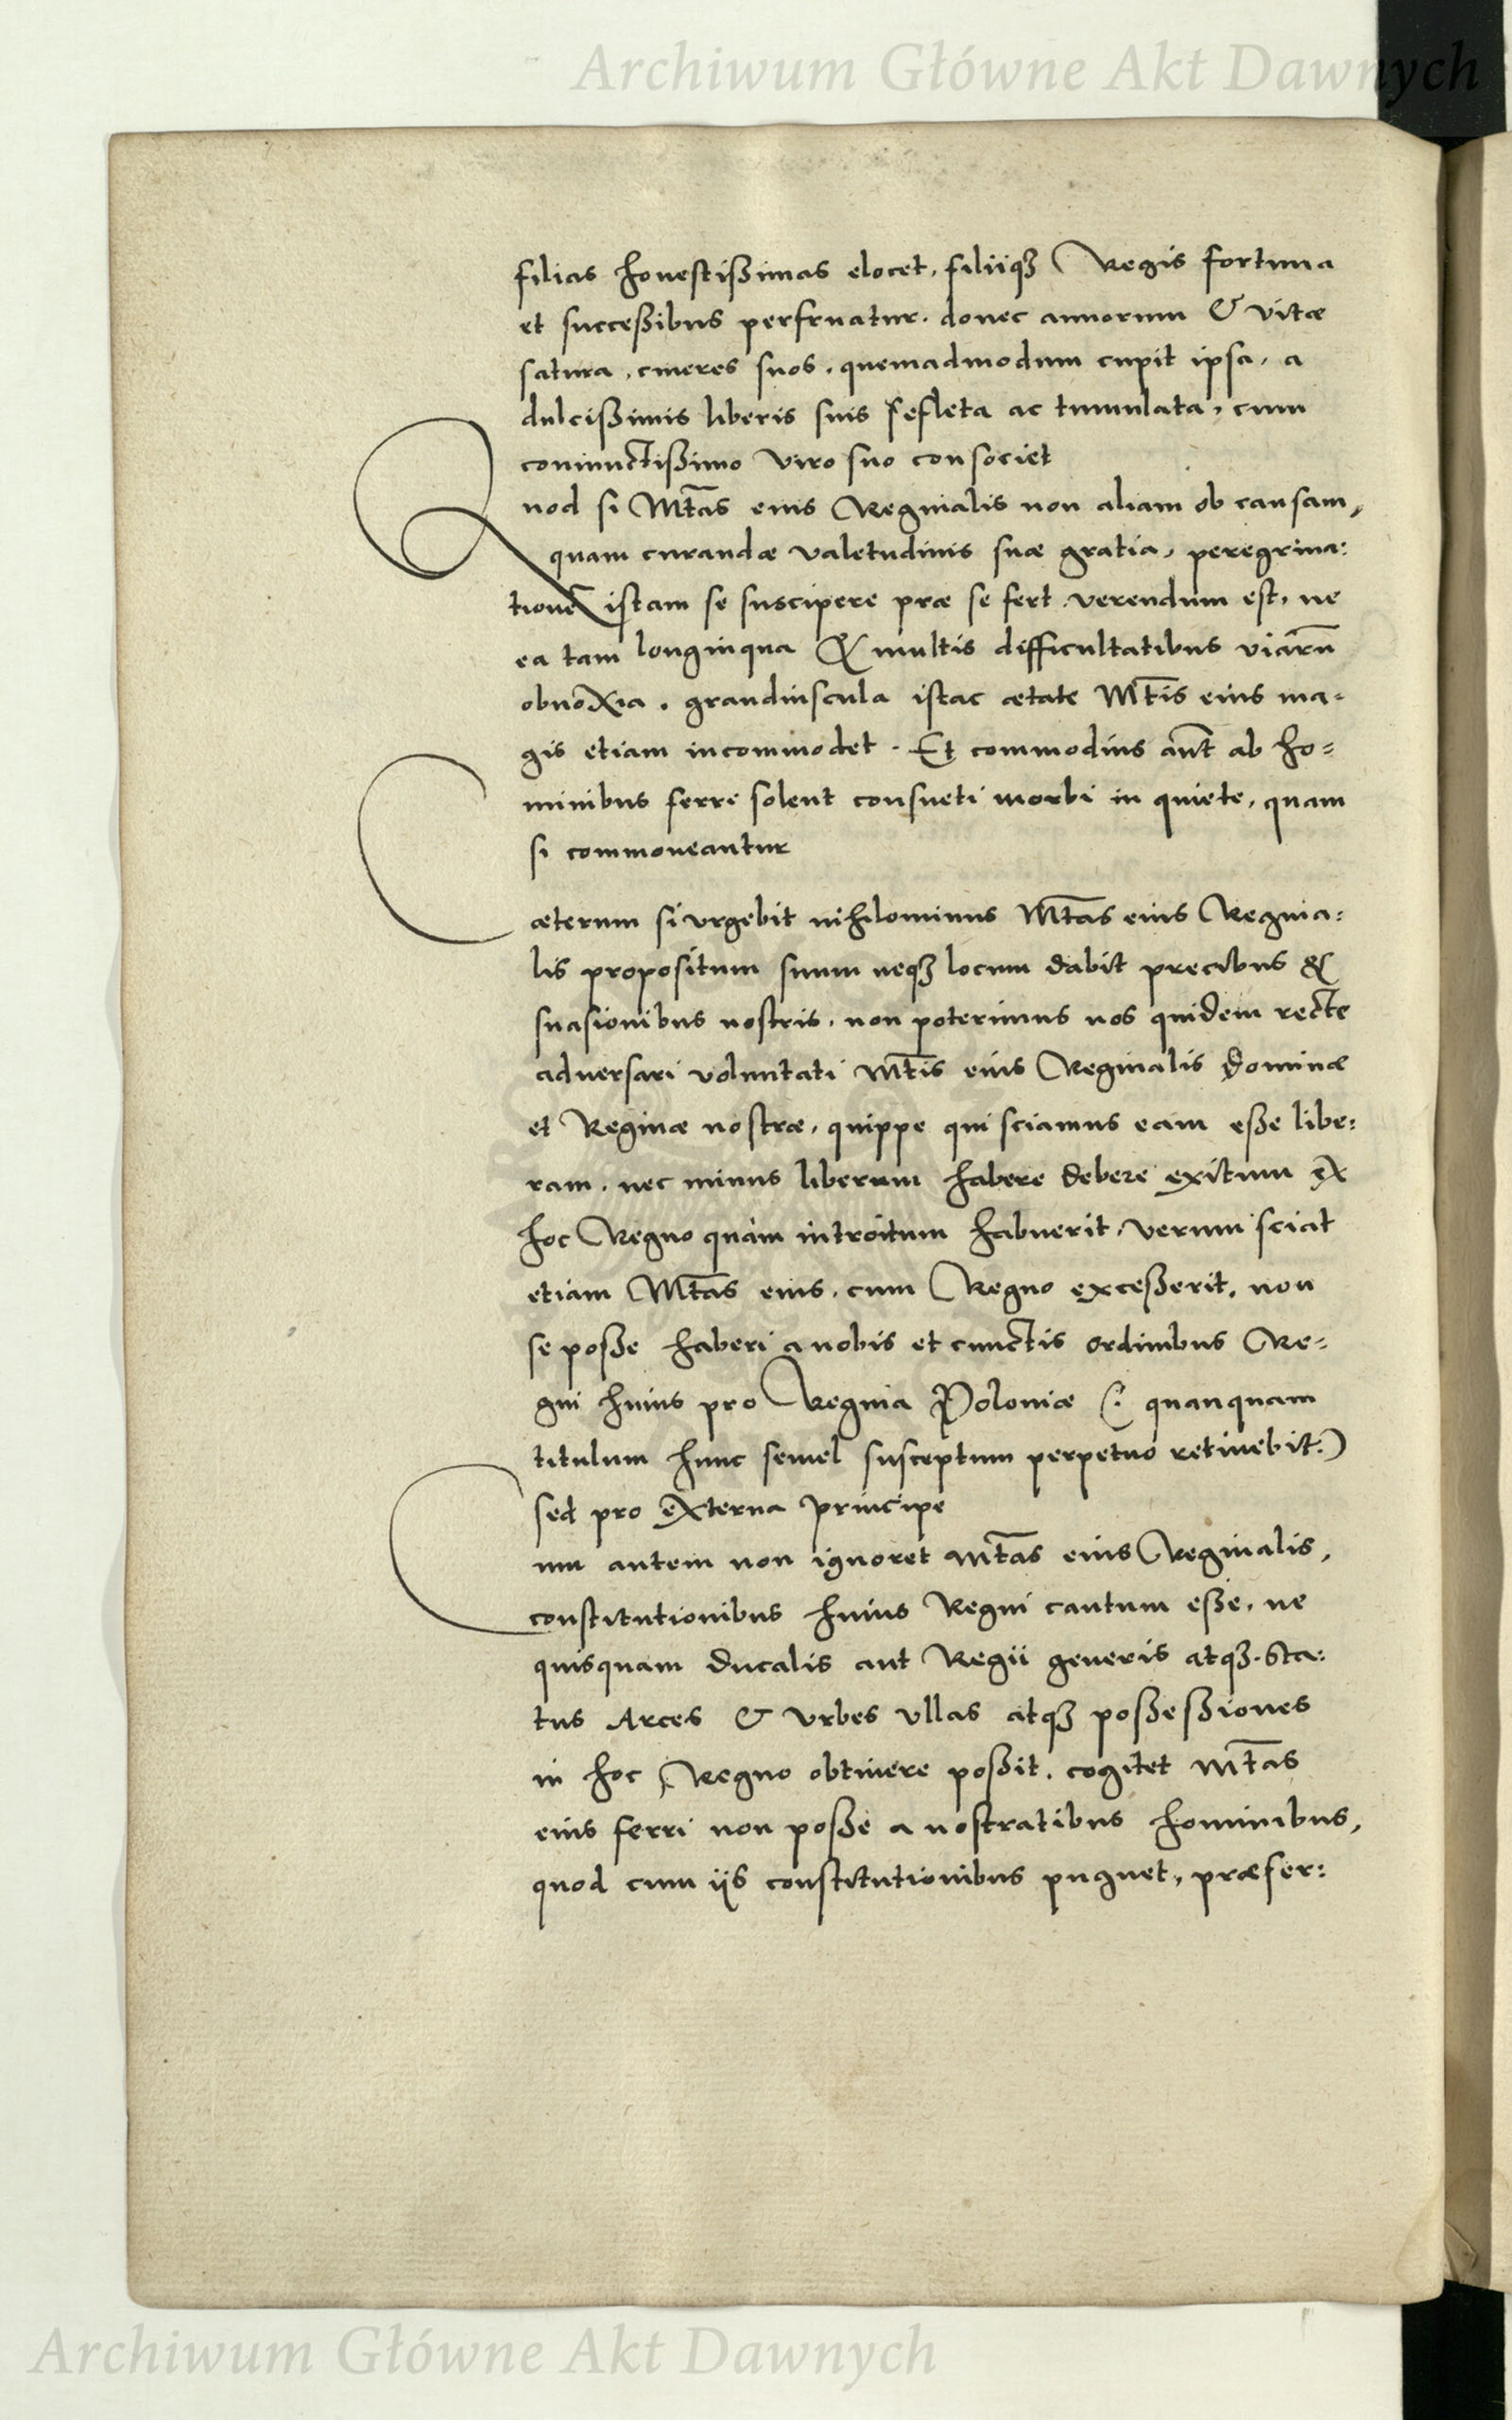 Archiwum Główne Akt Dawnych
filias honestißimas elocet, filiiqꝫ Regis fortuna
et succeßibus perfruatur. donec annorum & vitæ
satura, cineres suos, quemadmodum cupit ipsa, a
dulcißimis liberis suis defleta ac tumulata, cum
coniunctißimo viro suo consociet
Quod si Mt̃as eius Reginalis non aliam ob causam,
quam curandæ valetudinis suæ gratia, peregrina:
tionē istam se suscipere præ se fert, verendum est, ne
ea tam longinqua & multis difficultatibus viarū
obnoxia, grandiuscula istac ætate Mt̃is eius ma=
gis etiam incommodet. Et commodius aũt ab ho=
minibus ferri solent consueti morbi in quiete, quam
si commoueantur
Cæterum si vrgebit nihilominus Mt̃as eius Regina:
lis propositum suum neqꝫ locum dabit precibus &
suasionibus nostris, non poterimus nos quidem recte
aduersari voluntati Mt̃is eius Reginalis dominæ
et Reginæ nostræ, quippe qui sciamus eam eße libe:
ram, nec minus liberum habere debere exitum ex
hoc Regno quàm introitum habuerit, verum sciat
etiam Mt̃as eius, cum Regno exceßerit, non
se poße haberi a nobis et cunctis ordinibus Re=
gni huius pro Regina Poloniæ (: quanquam
titulum hunc semel susceptum perpetuo retinebit:)
sed pro externa principe
Cum autem non ignoret Mt̃as eius Reginalis,
constitutionibus huius Regni cautum eße, ne
quisquam ducalis aut Regii generis atqꝫ sta:
tus Arces & vrbes vllas atqꝫ poßeßiones
in hoc Regno obtinere poßit, cogitet Mt̃as
eius ferri non poße a nostratibus hominibus,
quod cum iis constitutionibus pugnet, præfer:
Archiwum Główne Akt Dawnych